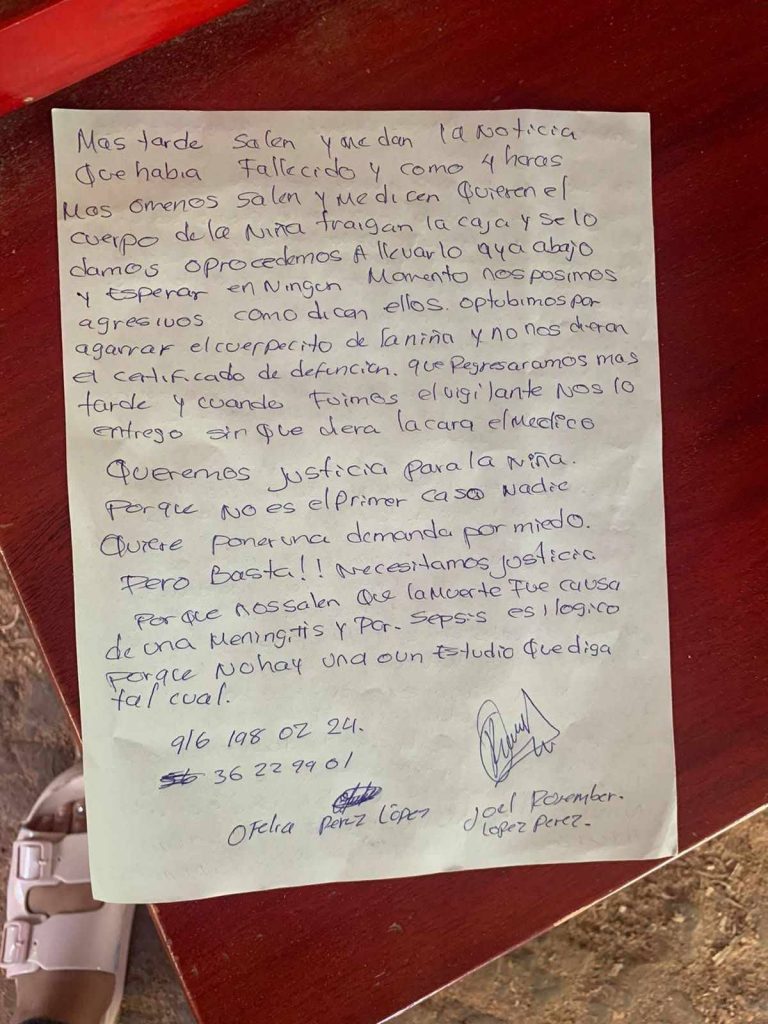 Mas tarde salen y me dan la noticia
Que habia Fallecido y como 4 horas
Mas omenos salen y me dicen Quieren el
cuerpo de la Niña traigan la caja y se lo
damos oprocedemos A llevarlo aya abajo
y Esperar en Ningun Momento nos posimos
agresivos como dican ellos. optubimos por
agarrar el cuerpecito de la niña y no nos dieran
el certificado de defuncion. que Regresaramos mas
tarde y cuando Fuimos el vigilante Nos lo
entrego sin Que diera la cara el Medico
Queremos justicia para la Niña.
Porque No es el primer caso Nadie
Quiere poner una demanda por miedo.
Pero Basta!! Necesitamos justicia
Porque nos salen Que la Muerte Fue causa
de una Meningitis y Por. Sepsis es ilogico
Porque No hay una o un Estudio Que diga
tal cual.
916 198 02 24.
56 36 22 99 01
Ofelia Perez López
Joel Rosember.
Lopez Perez.